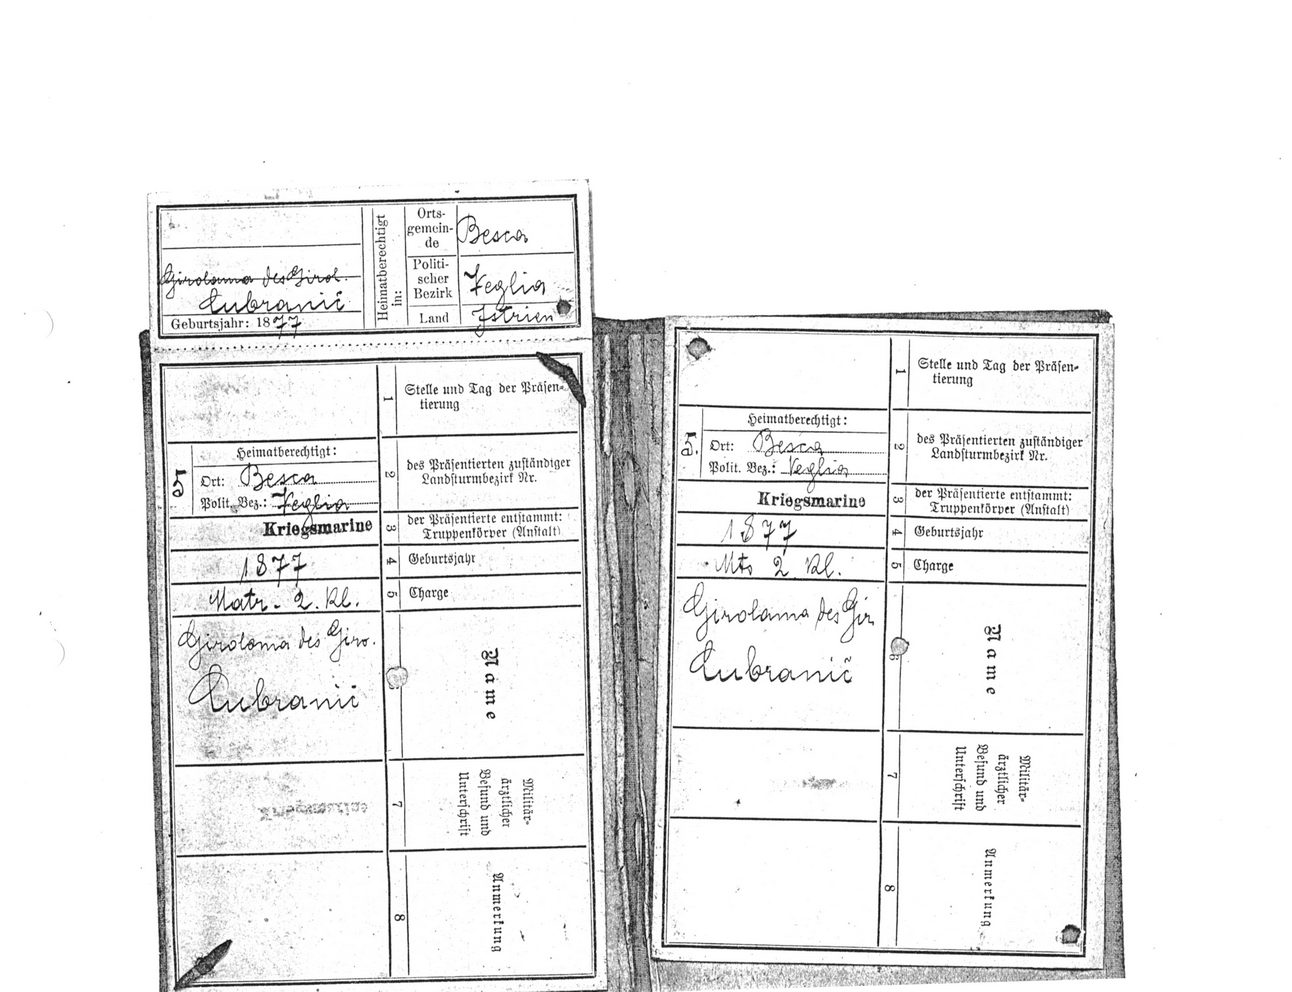 Girolama des Girol.
Lubranić
Geburtsjahr: 1877
Heimatberechtigt in:
Ortsgemeinde
Besca
Politischer Bezirk
Veglia
Land
Istrien
1
Stelle und Tag der Präsen-
tierung
5
Heimatberechtigt:
Ort: Besca
Polit. Bez.: Veglia
2
des Präsentierten zuständiger
Landsturmbezirk Nr.
Kriegsmarine
3
der Präsentierte entstammt:
Truppenkörper (Anstalt)
1877
4
Geburtsjahr
Matr. 2. Kl.
5
Charge
Girolama des Giro.
Lubranić
Name
7
Militär-
ärztlicher
Befund und
Unterschrift
Kriegsmarine
8
Anmerkung
1
Stelle und Tag der Präsen-
tierung
5.
Heimatberechtigt:
Ort: Besca
Polit. Bez.: Veglia
2
des Präsentierten zuständiger
Landsturmbezirk Nr.
Kriegsmarine
3
der Präsentierte entstammt:
Truppenkörper (Anstalt)
1877
4
Geburtsjahr
Mts 2. Kl.
5
Charge
Girolama des Gir
Lubranić
6
Name
7
Militär-
ärztlicher
Befund und
Unterschrift
8
Anmerkung